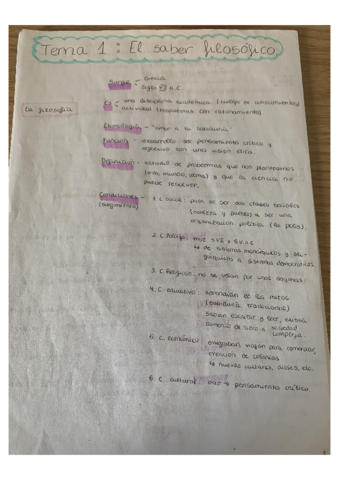 Tema 1: El saber filosófico
Surge:- Grecia
Siglo VI a.C
La filosofía
Es - una disciplina académica (cuerpo de conocimientos)
actividad (respuestas con razonamiento)
Etimología - "amor a la sabiduría"
Función - desarrollo del pensamiento crítico y
reflexivo con una visión ética.
Definición - estudio de problemas que nos planteamos
(vida, mundo, alma) y que la ciencia no
puede resolver.
Condiciones - 1. C. social: pasa de ser dos clases sociales
(surgimiento) (nobleza y pueblo) a ser una
organización política (la polis).
2. C. Político: entre s VI a s V a.C
de sistemas monárquicos y oli-
gárquicos a sistema democráticos.
3. C. Religioso: no se regían por unos dogmas.
4. C. educativo: aprendían de los mitos
(sabiduría tradicional)
sabían escribir y leer,
comercio de toda sociedad
compleja.
5. C. económico: emigraban, viajan para comerciar,
creación de colonias
nuevas culturas, dioses, etc.
6. C. cultural: pensamiento crítico.